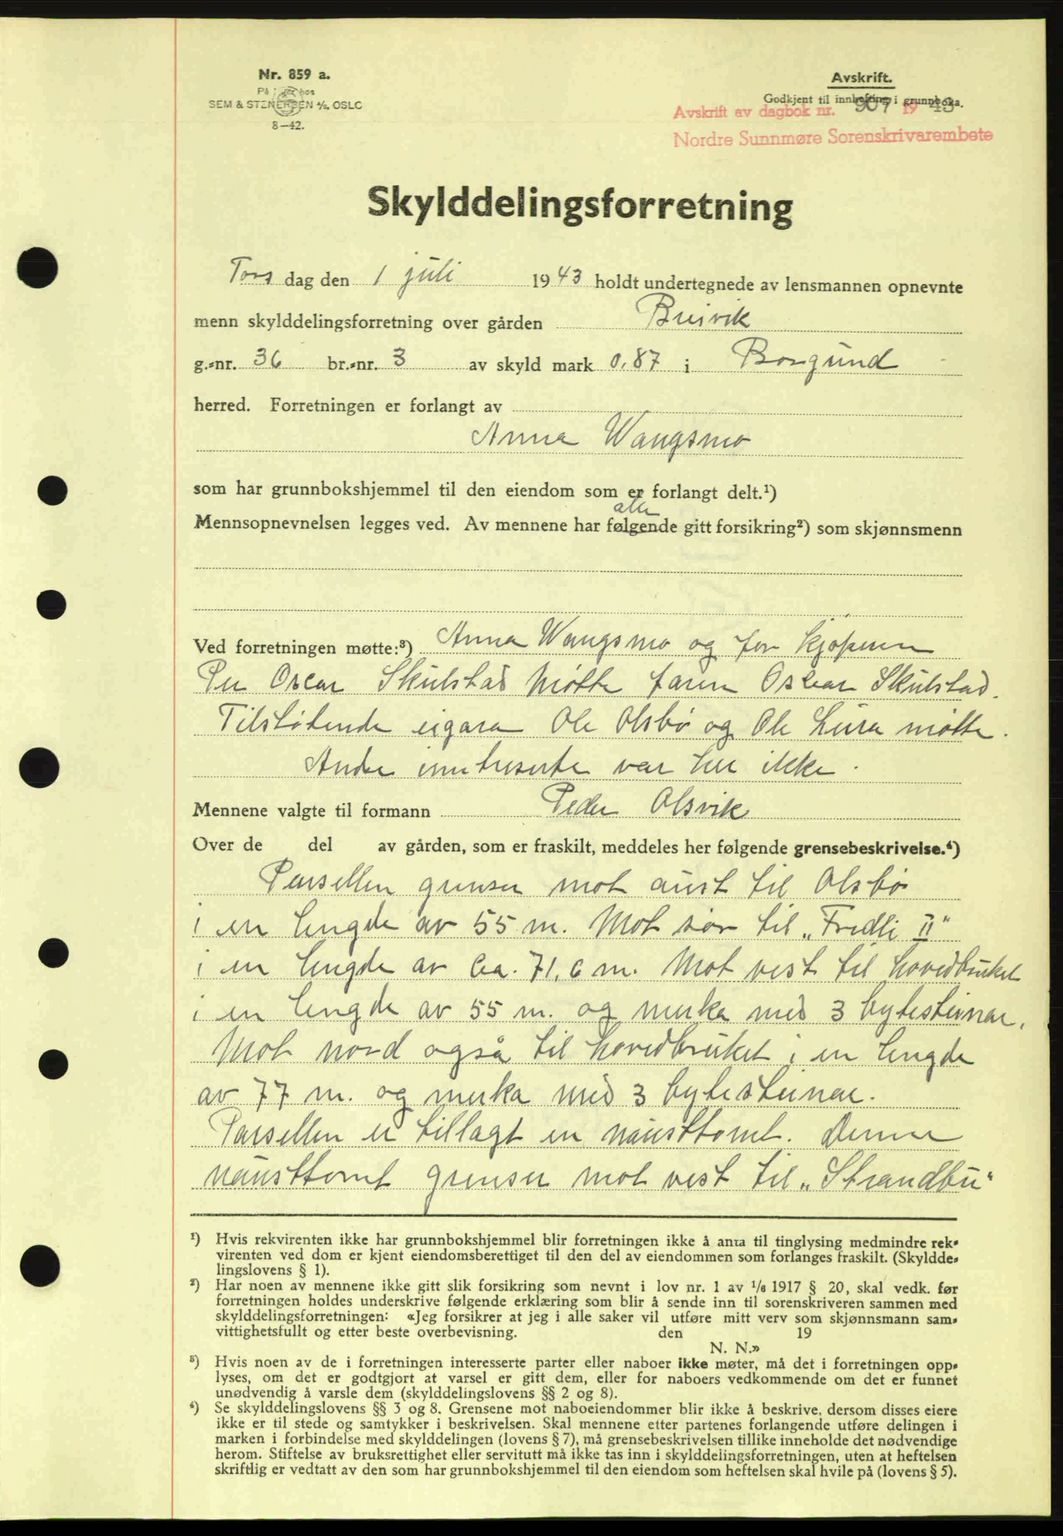 Nr. 859 a.
SEM & STENERSEN A/S, OSLO
8-42.
Avskrift.
Godkjent til innhefting i grunnboka.
Avskrift av dagbok nr. 907 1943
Nordre Sunnmøre Sorenskrivarembete
Skylddelingsforretning
Tors dag den 1 juli 1943 holdt undertegnede av lensmannen opnevnte
menn skylddelingsforretning over gården Breivik
g.-nr. 36 br.-nr. 3 av skyld mark 0,87 i Borgund
herred. Forretningen er forlangt av
Anna Wangsmo
som har grunnbokshjemmel til den eiendom som er forlangt delt.¹)
alle
Mennsopnevnelsen legges ved. Av mennene har følgende gitt forsikring²) som skjønnsmenn
Ved forretningen møtte:³) Anna Wangsmo og for kjøperen
Per Oscar Skulstad møtte faren Oscar Skulstad.
Tilstøtende eigara Ole Olsbø og Ole Lura møtte.
Andre inntreserte var her ikke.
Mennene valgte til formann Peder Olsvik
Over de del av gården, som er fraskilt, meddeles her følgende grensebeskrivelse.⁴)
Parsellen grenser mot aust til Olsbø
i en lengde av 55 m. Mot sør til „Fredli II“
i en lengde av ca. 71,6 m. Mot vest til hovedbruket
i en lengde av 55 m. og merka med 3 bytesteinar.
Mot nord også til hovedbruket i en lengde
av 77 m. og merka med 3 bytesteinar.
Parsellen er tillagt en nausttomt. Denne
nausttomt grenser mot vest til „Strandbu“
¹) Hvis rekvirenten ikke har grunnbokshjemmel blir forretningen ikke å anta til tinglysing medmindre rek-
virenten ved dom er kjent eiendomsberettiget til den del av eiendommen som forlanges fraskilt. (Skyldde-
lingslovens § 1).
²) Har noen av mennene ikke gitt slik forsikring som nevnt i lov nr. 1 av 1/6 1917 § 20, skal vedk. før
forretningen holdes underskrive følgende erklæring som blir å sende inn til sorenskriveren sammen med
skylddelingsforretningen: «Jeg forsikrer at jeg i alle saker vil utføre mitt verv som skjønnsmann sam-
vittighetsfullt og etter beste overbevisning. den 19
N. N.»
³) Hvis noen av de i forretningen interesserte parter eller naboer ikke møter, må det i forretningen opp-
lyses, om det er godtgjort at varsel er gitt dem, eller for naboers vedkommende om det er funnet
unødvendig å varsle dem (skylddelingslovens §§ 2 og 8).
⁴) Se skylddelingslovens §§ 3 og 8. Grensene mot naboeiendommer blir ikke å beskrive, dersom disses eiere
ikke er til stede og samtykker i beskrivelsen. Skal mennene etter partenes forlangende utføre delingen i
marken i forbindelse med skylddelingen (lovens § 7), må grensebeskrivelsen tillike inneholde det nødvendige
herom. Stiftelse av bruksrettighet eller servitutt må ikke tas inn i skylddelingsforretningen, uten at heftelsen
skriftlig er vedtatt av den som har grunnbokshjemmel til den eiendom som heftelsen skal hvile på (lovens § 5).